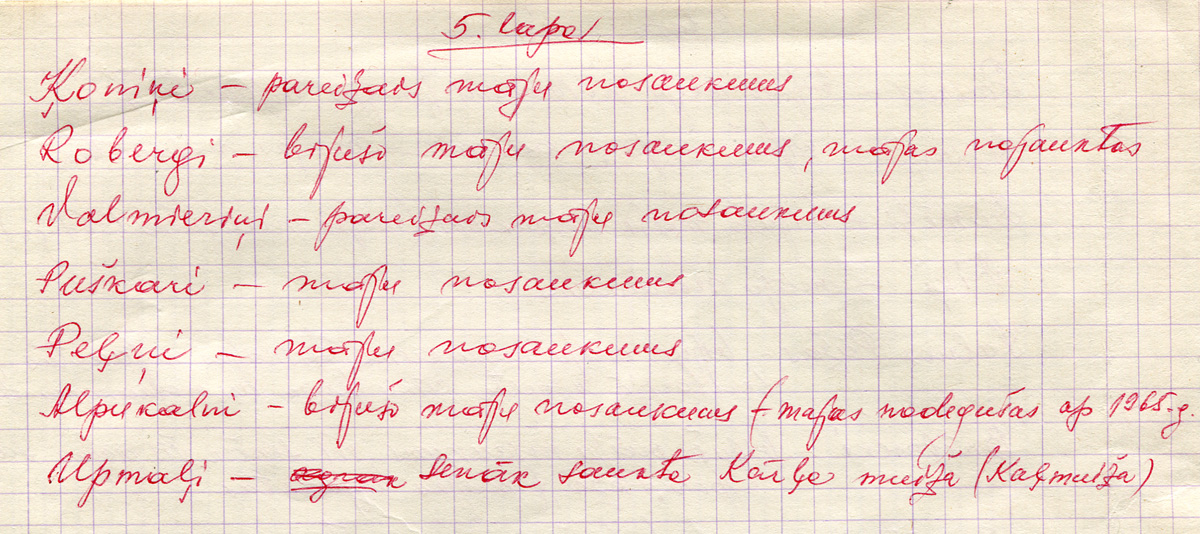 5. lapa
Ķoniņi – pareizais māju nosaukums
Robergi – bijušo māju nosaukums, mājas nojauktas
Valmieriņi – pareizais māju nosaukums
Puškari – māju nosaukums
Peļņi – māju nosaukums
Alpukalni – bijušo māju nosaukums (– mājas nodegušas ap 1965. g.
Upmaļi – senāk saukta Kārļa muiža (Kaļmuiža)